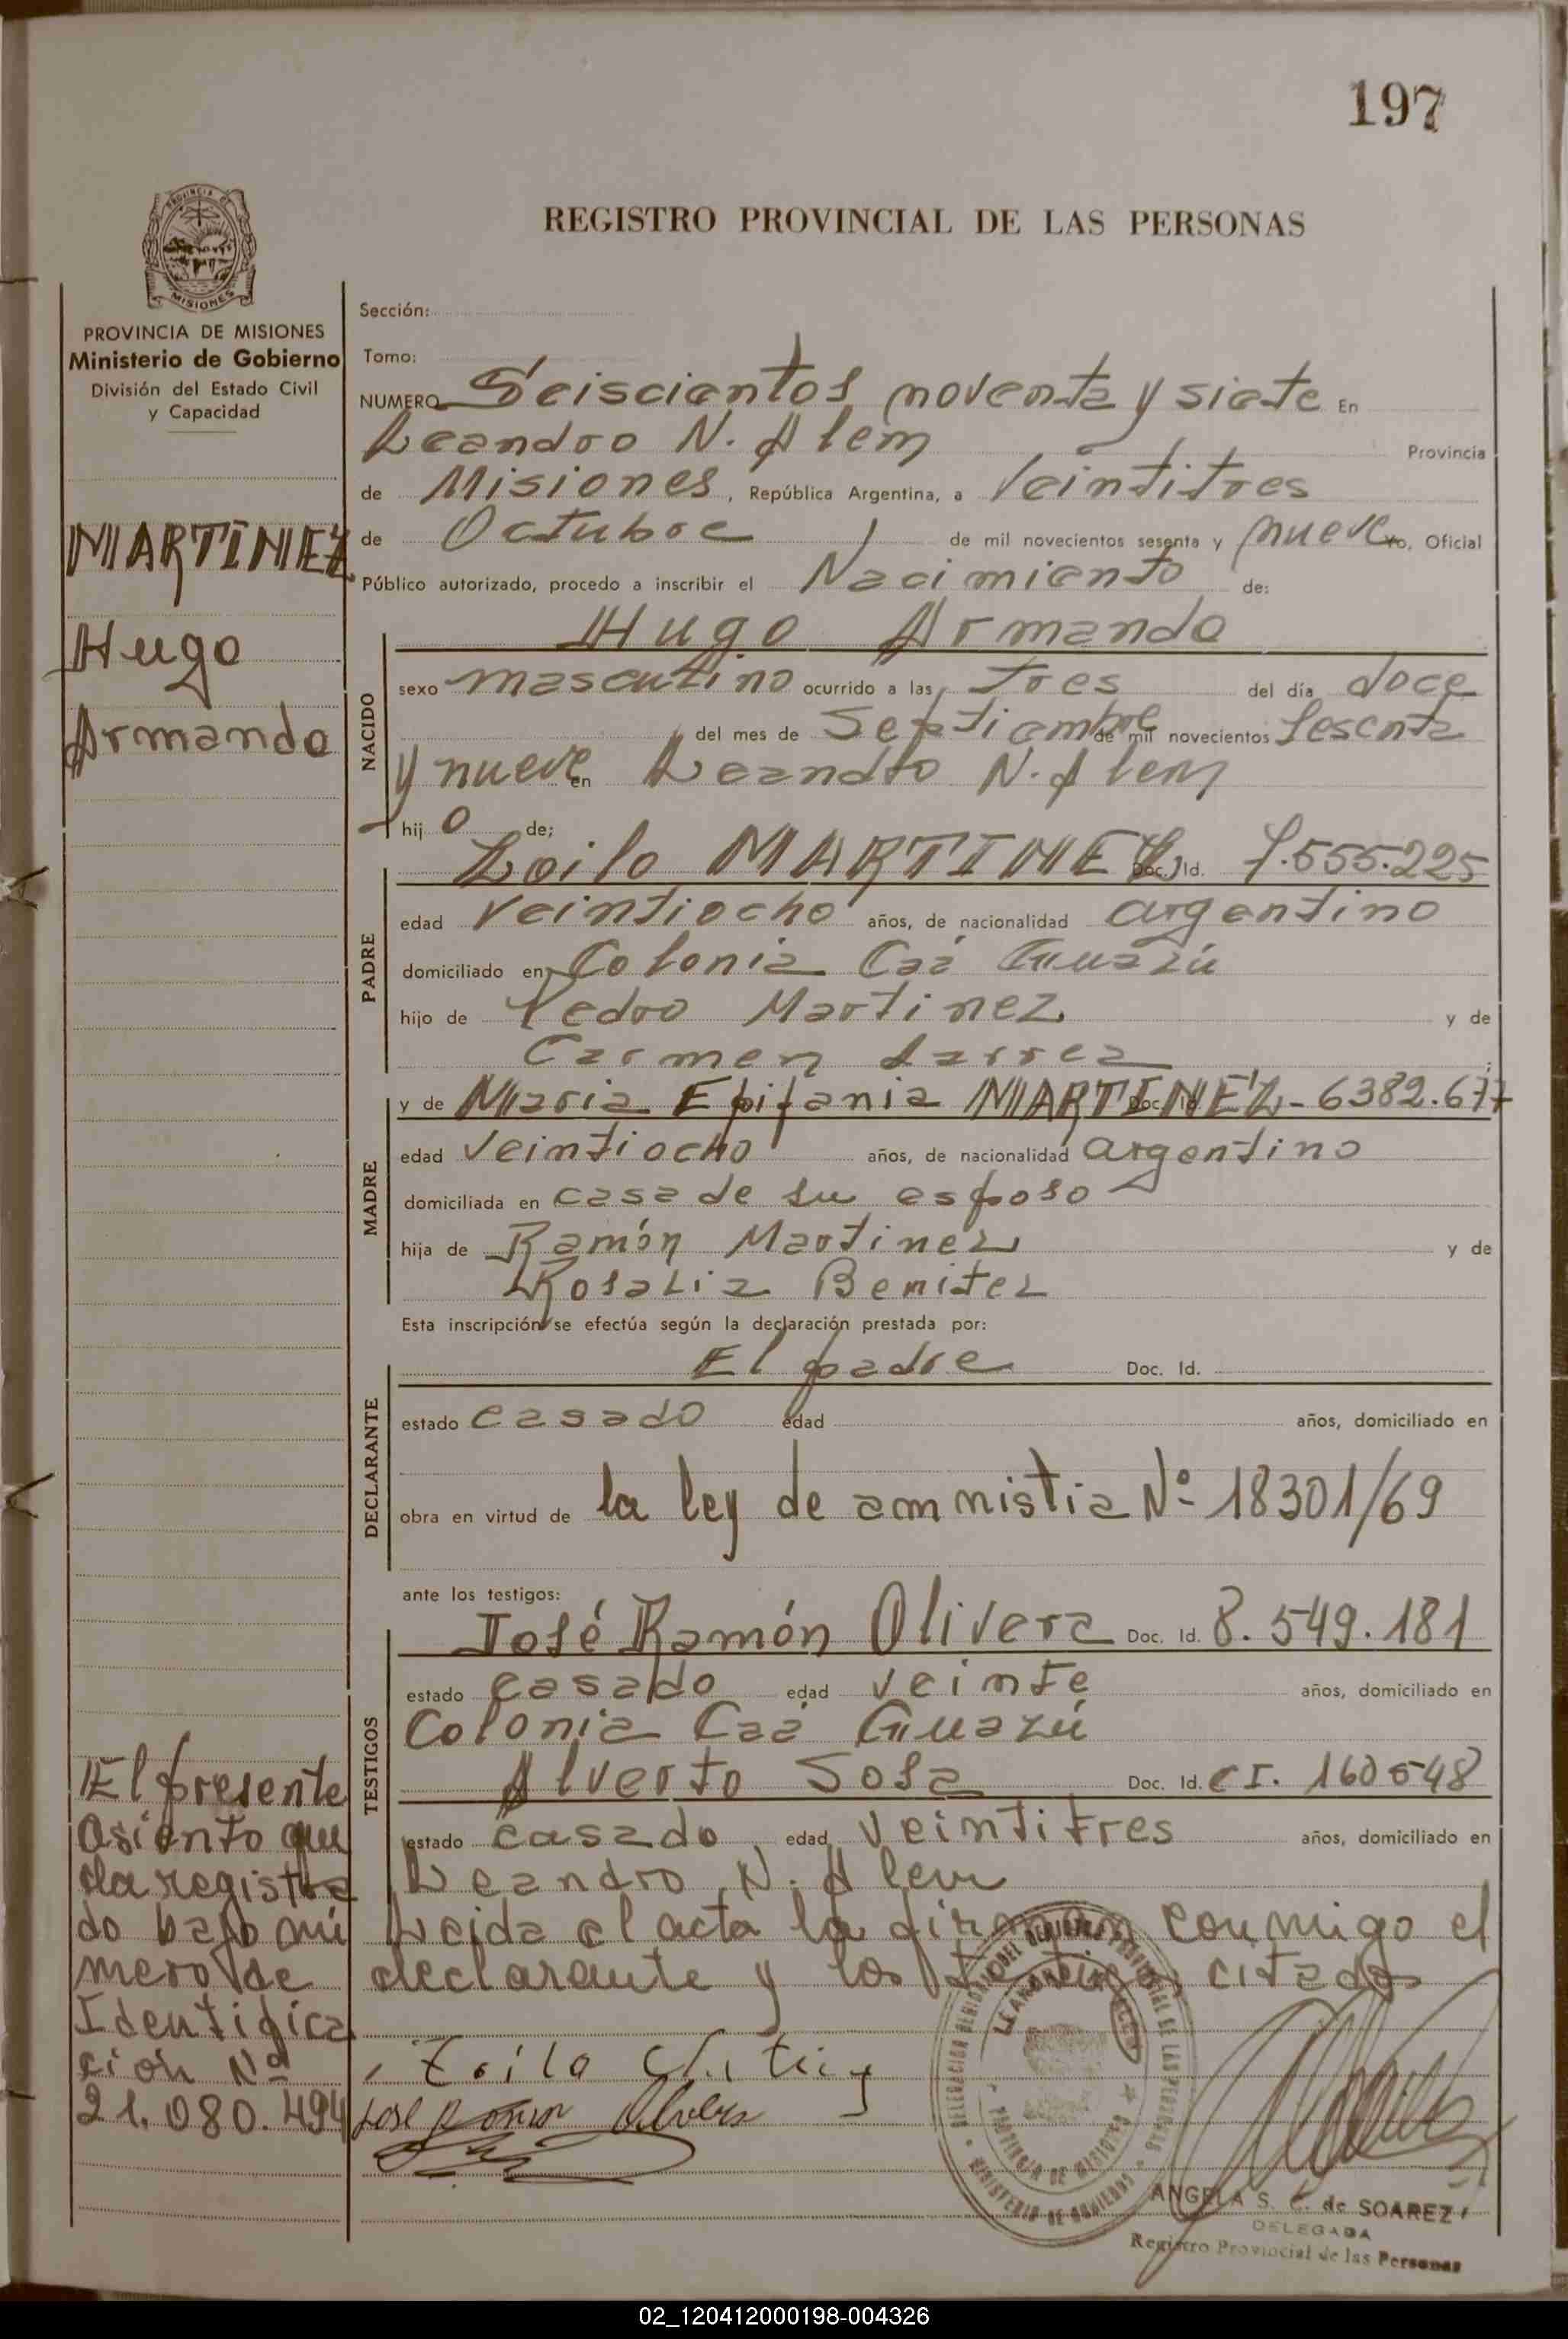 197
REGISTRO PROVINCIAL DE LAS PERSONAS
PROVINCIA DE MISIONES
Ministerio de Gobierno
División del Estado Civil
y Capacidad
MARTINEZ
Hugo
Armando
Sección:
Tomo:
NUMERO Seiscientos noventa y siete En
Leandro N. Alem Provincia
de Misiones, República Argentina, a Veintitres
de Octubre de mil novecientos sesenta y nueve yo, Oficial
Público autorizado, procedo a inscribir el Nacimiento de:
Hugo Armando
NACIDO
sexo masculino ocurrido a las tres del día doce
del mes de Septiembre de mil novecientos sesenta
y nueve en Leandro N. Alem
hijo de;
Zoilo MARTINEZ Doc. Id. 7.555.225
PADRE
edad veintiocho años, de nacionalidad argentino
domiciliado en Colonia Caá Guazú
hijo de Pedro Martinez y de
Carmen Larrea
y de Maria Epifania MARTINEZ - 6382.677
MADRE
edad veintiocho años, de nacionalidad argentino
domiciliada en casa de su esposo
hija de Ramón Martinez y de
Rosalia Benitez
Esta inscripción se efectúa según la declaración prestada por:
El padre Doc. Id.
DECLARANTE
estado casado edad años, domiciliado en
obra en virtud de la ley de amnistia Nº 18301/69
ante los testigos:
José Ramón Olivera Doc. Id. 8.549.181
TESTIGOS
estado casado edad veinte años, domiciliado en
Colonia Caá Guazú
Alverto Sosa Doc. Id. CI. 160548
estado casado edad veintitres años, domiciliado en
Leandro N. Alem
Leida el acta la firman conmigo el
declarante y los testigos citados
El presente
asiento que
da registra
do bajo nú
mero de
Identifica
ción Nº
21.080.494
Zoilo
Jose Ramon Olivera
ANGELA S. C. de SOAREZ
DELEGADA
Registro Provincial de las Personas
02_120412000198-004326